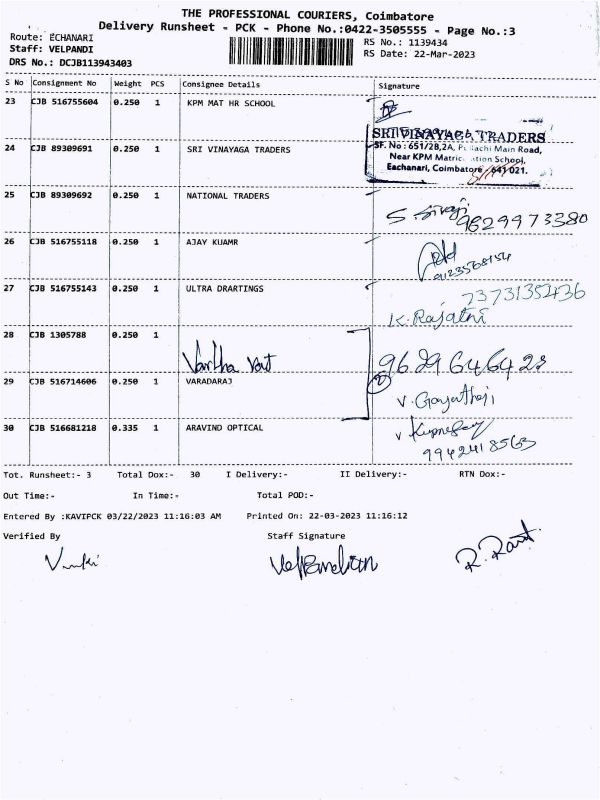 THE PROFESSIONAL COURIERS, Coimbatore
Delivery Runsheet - PCK - Phone No.:0422-3505555 - Page No.:3
Route: ECHANARI
Staff: VELPANDI
DRS No.: DCJB113943403
RS No.: 1139434
RS Date: 22-Mar-2023
S No Consignment No Weight PCS Consignee Details Signature
23 CJB 516755604 0.250 1 KPM MAT HR SCHOOL
24 CJB 89309691 0.250 1 SRI VINAYAGA TRADERS
SRI VINAYAGA TRADERS
SF. No : 651/2B,2A, Pollachi Main Road,
Near KPM Matriculation School,
Eachanari, Coimbatore - 641 021.
25 CJB 89309692 0.250 1 NATIONAL TRADERS
S. Sivaji 9629973380
26 CJB 516755118 0.250 1 AJAY KUAMR
9123568154
27 CJB 516755143 0.250 1 ULTRA DRARTINGS
73731352436
K. Rajathi
28 CJB 1305788 0.250 1
9629646428
29 CJB 516714606 0.250 1 VARADARAJ
V. Gayathri
30 CJB 516681218 0.335 1 ARAVIND OPTICAL
9942418563
Tot. Runsheet:- 3 Total Dox:- 30 I Delivery:- II Delivery:- RTN Dox:-
Out Time:- In Time:- Total POD:-
Entered By :KAVIPCK 03/22/2023 11:16:03 AM Printed On: 22-03-2023 11:16:12
Verified By Staff Signature
Velpandian